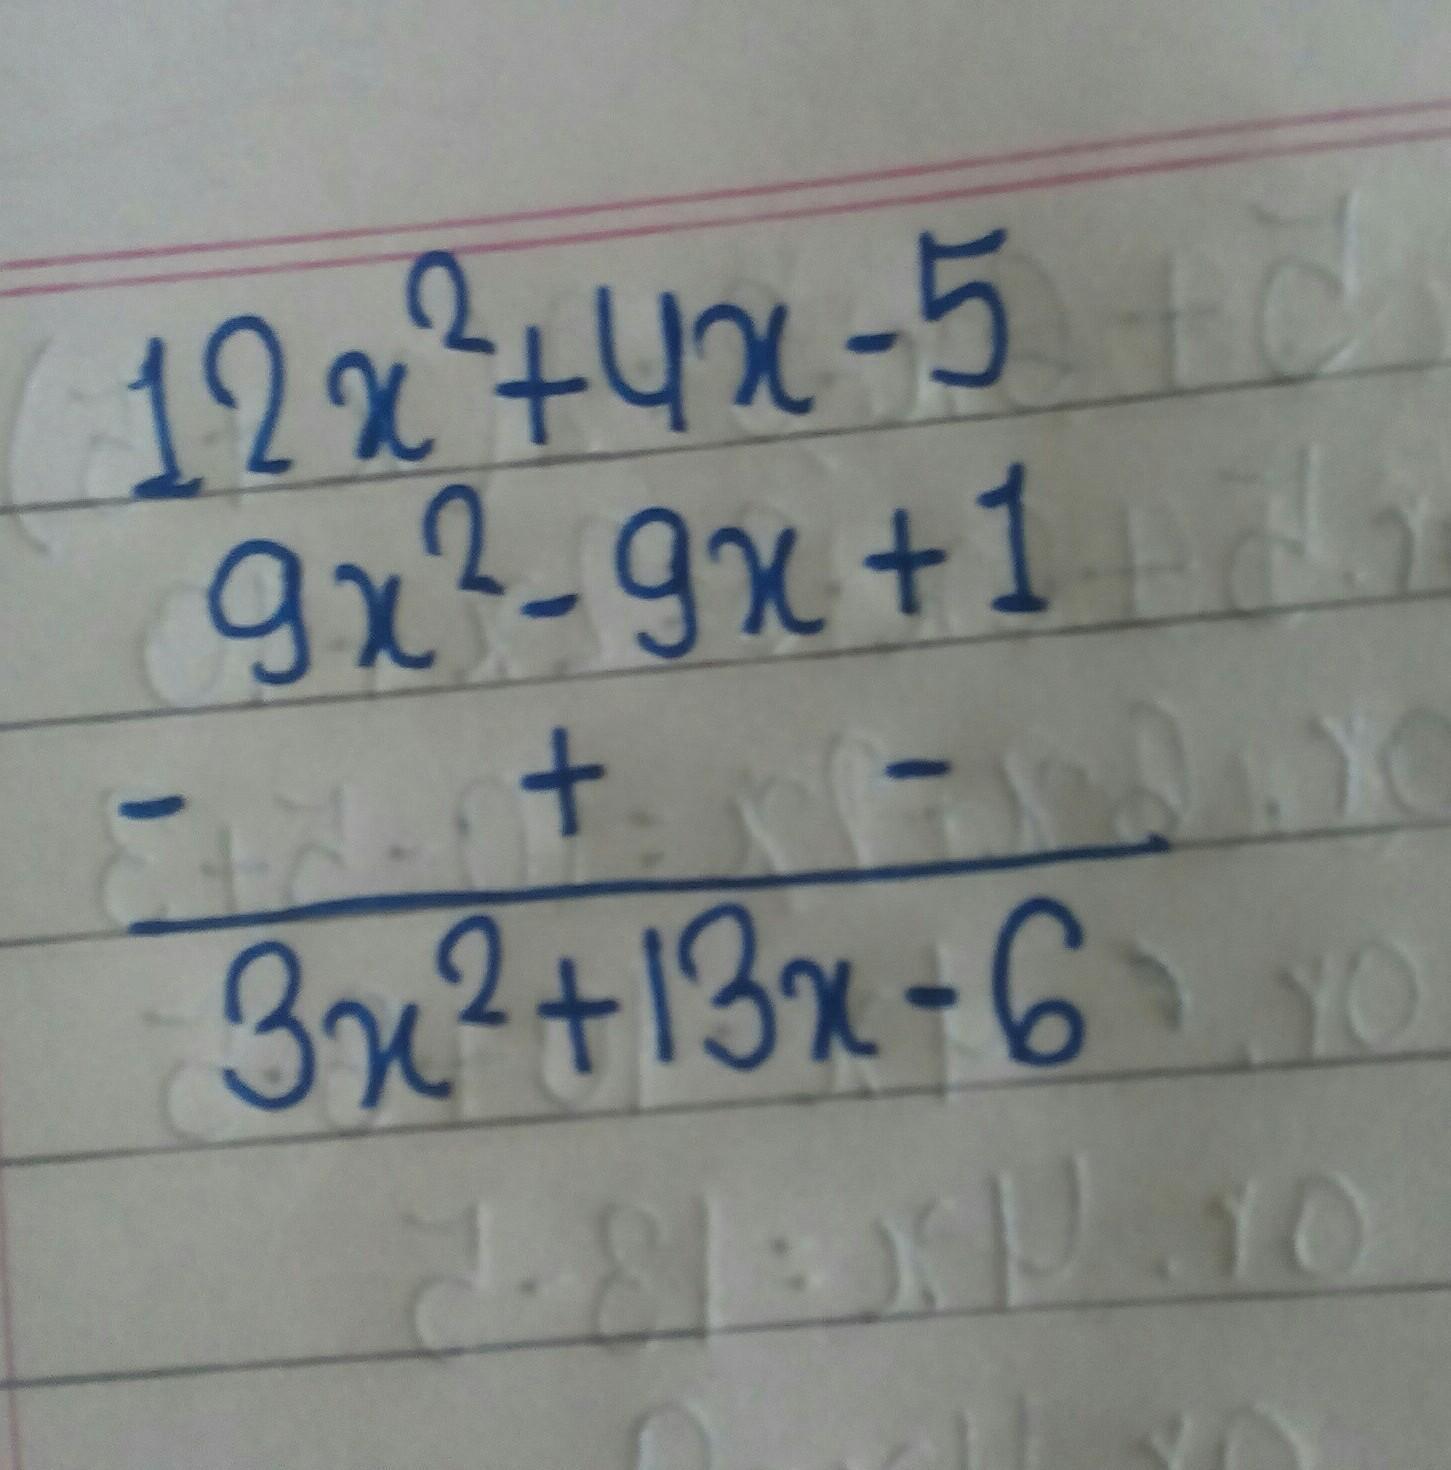 12x²+4x-5
9x²-9x+1
- + -
3x²+13x-6